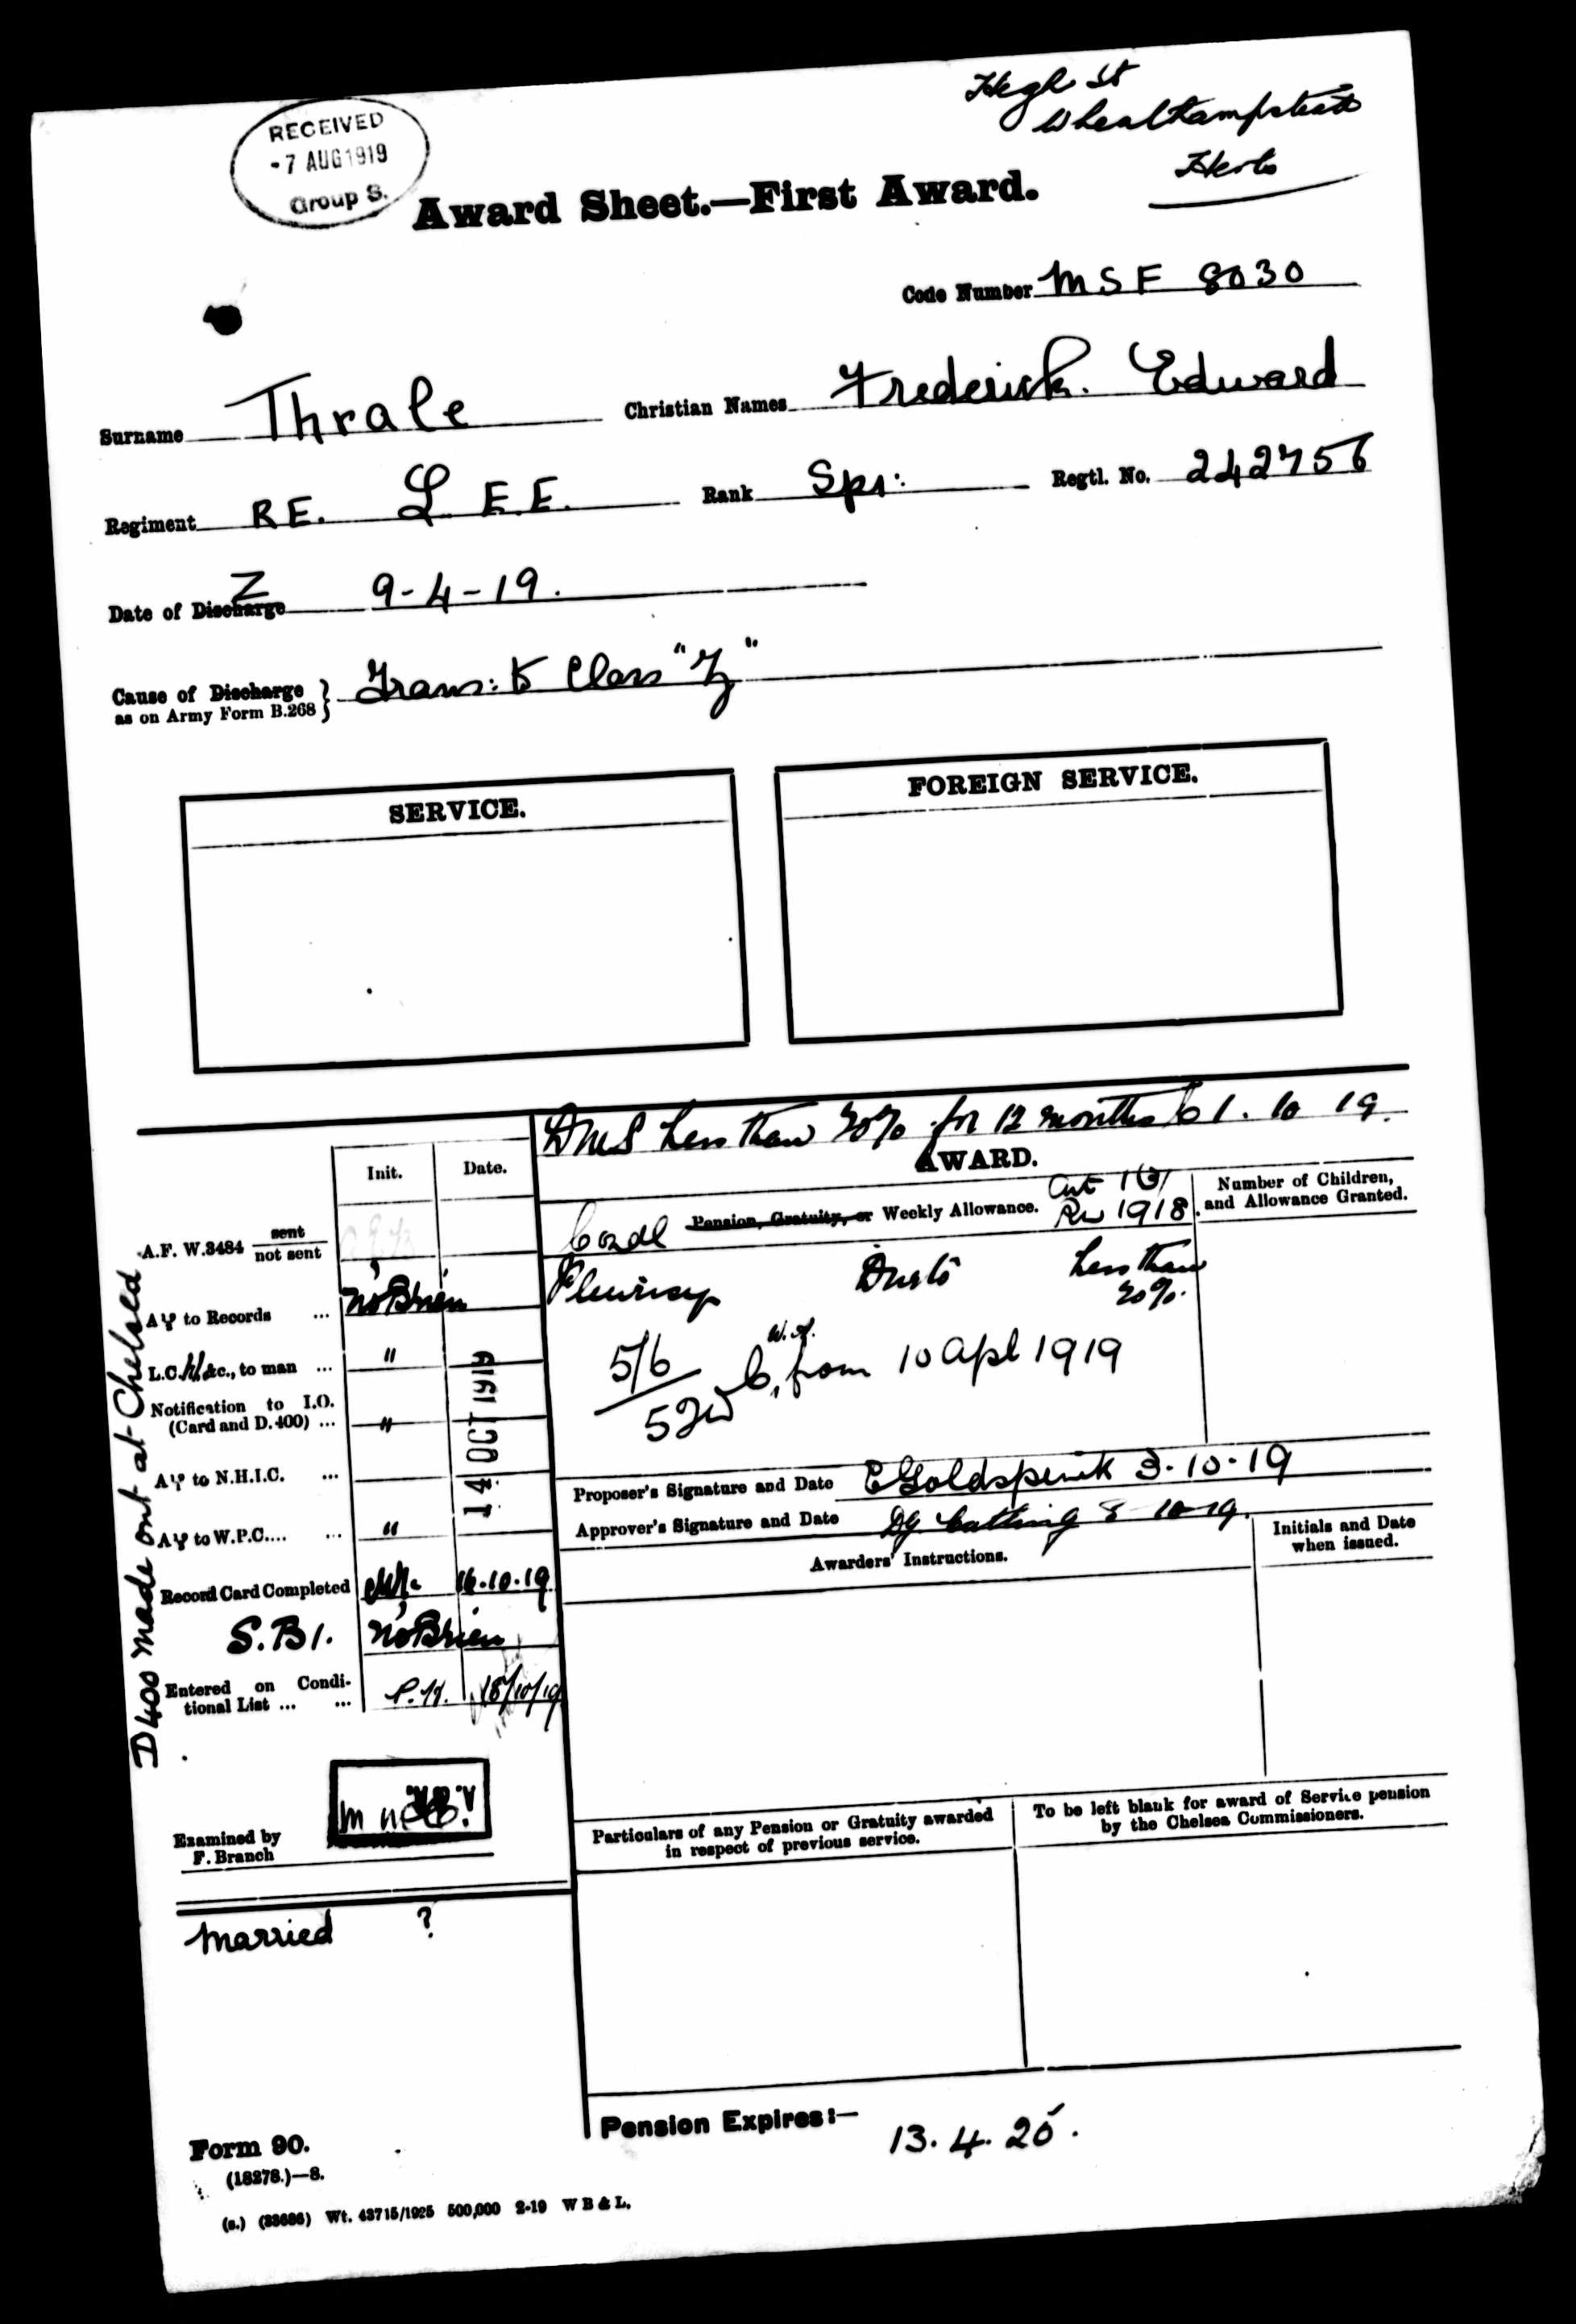 High St
Wheathampstead
Herts
RECEIVED
-7 AUG 1919
Group S.
Award Sheet.—First Award.
Code Number MSF 8030
Surname Thrale Christian Names Frederick. Edward
Regiment RE. L E.E. Rank Spr: Regtl. No. 242756
Z
Date of Discharge 9-4-19.
Cause of Discharge } Trans: to Class "Z"
as on Army Form B.268
SERVICE.
FOREIGN SERVICE.
DMS Less than 20% for 12 months to 1. 10 19.
AWARD.
Init. Date.
Condl Pension, Gratuity, or Weekly Allowance. Art 1(3) RW 1918.
Number of Children,
and Allowance Granted.
A.F. W.3484 sent
not sent
Pleurisy Due to Less than
20%.
A to Records ... N O'Brien
5/6 W.A. from 10 Apl 1919
52w
L.C. &c., to man ... "
Notification to I.O.
(Card and D.400) ... "
14 OCT 1919
A to N.H.I.C. ...
A to W.P.C.... ... "
Proposer's Signature and Date E Goldspink 3-10-19
Approver's Signature and Date Catling 8-10-19.
Awarders' Instructions.
Initials and Date
when issued.
Record Card Completed 16.10.19
S.B1. N O'Brien
Entered on Condi-
tional List ... ... P.H. 18/10/19
D400 made out at Chelsea
Examined by
F. Branch
Particulars of any Pension or Gratuity awarded
in respect of previous service.
To be left blank for award of Service pension
by the Chelsea Commissioners.
Married ?
Pension Expires:— 13.4.20.
Form 90.
(18278.)—8.
(s.) (33686) Wt. 43715/1925 500,000 2-19 W B & L.